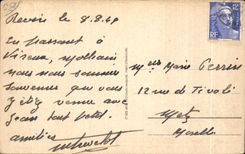 Revin le 8.8.49
En passant à
Vireux, Molhain
nous nous sommes
souvenus que vous
y étiez venue avec
Jean tout petit.
amitiés
Mlle Marie Perrin
12 rue de Tivoli
Metz
Moselle